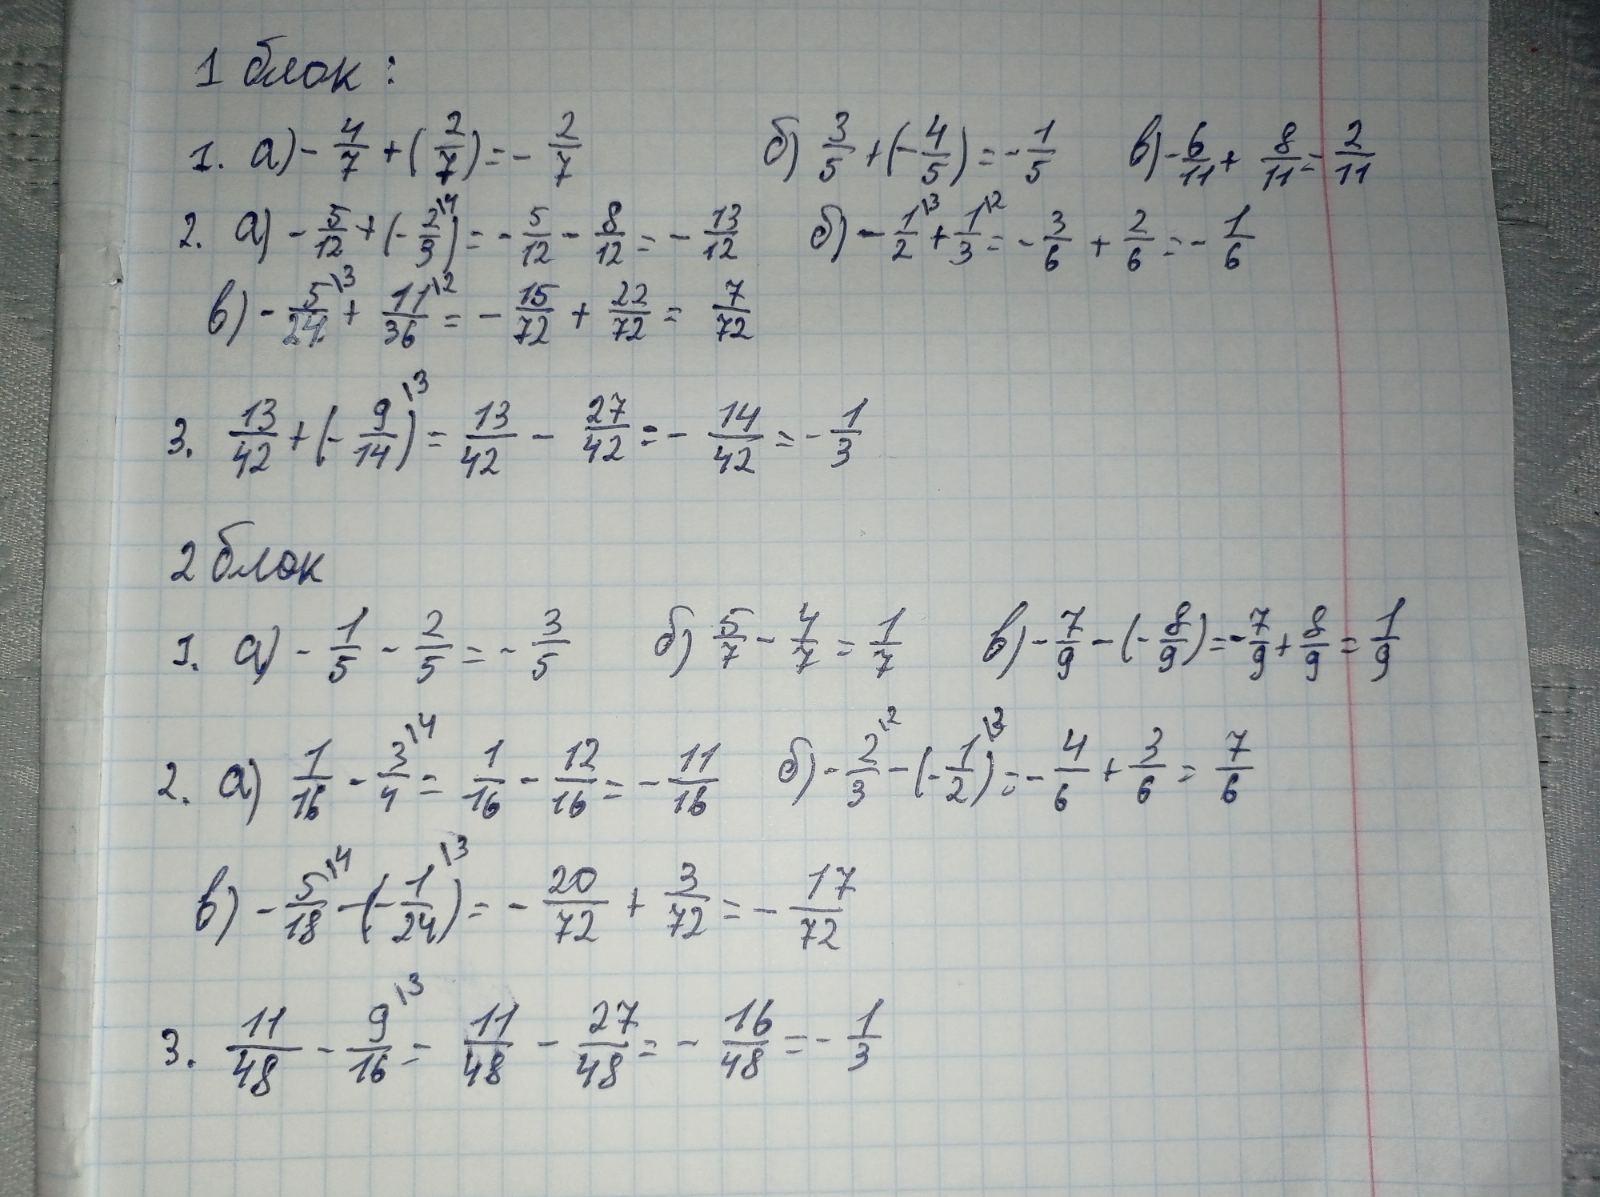 1 блок:
1. а) - 4/7 + (2/7) = - 2/7 б) 3/5 + (- 4/5) = - 1/5 в) - 6/11 + 8/11 = 2/11
2. а) - 5/12 + (- 2/3\4) = - 5/12 - 8/12 = - 13/12 б) - 1/2\3 + 1/3\2 = - 3/6 + 2/6 = - 1/6
в) - 5/24\3 + 11/36\2 = - 15/72 + 22/72 = 7/72
3. 13/42 + (- 9/14)\3 = 13/42 - 27/42 = - 14/42 = - 1/3
2 блок
1. а) - 1/5 - 2/5 = - 3/5 б) 5/7 - 4/7 = 1/7 в) - 7/9 - (- 8/9) = - 7/9 + 8/9 = 1/9
2. а) 1/16 - 3/4\4 = 1/16 - 12/16 = - 11/16 б) - 2/3\2 - (- 1/2\3) = - 4/6 + 3/6 = 7/6
в) - 5/18\4 - (- 1/24\3) = - 20/72 + 3/72 = - 17/72
3. 11/48 - 9/16\3 = 11/48 - 27/48 = - 16/48 = - 1/3